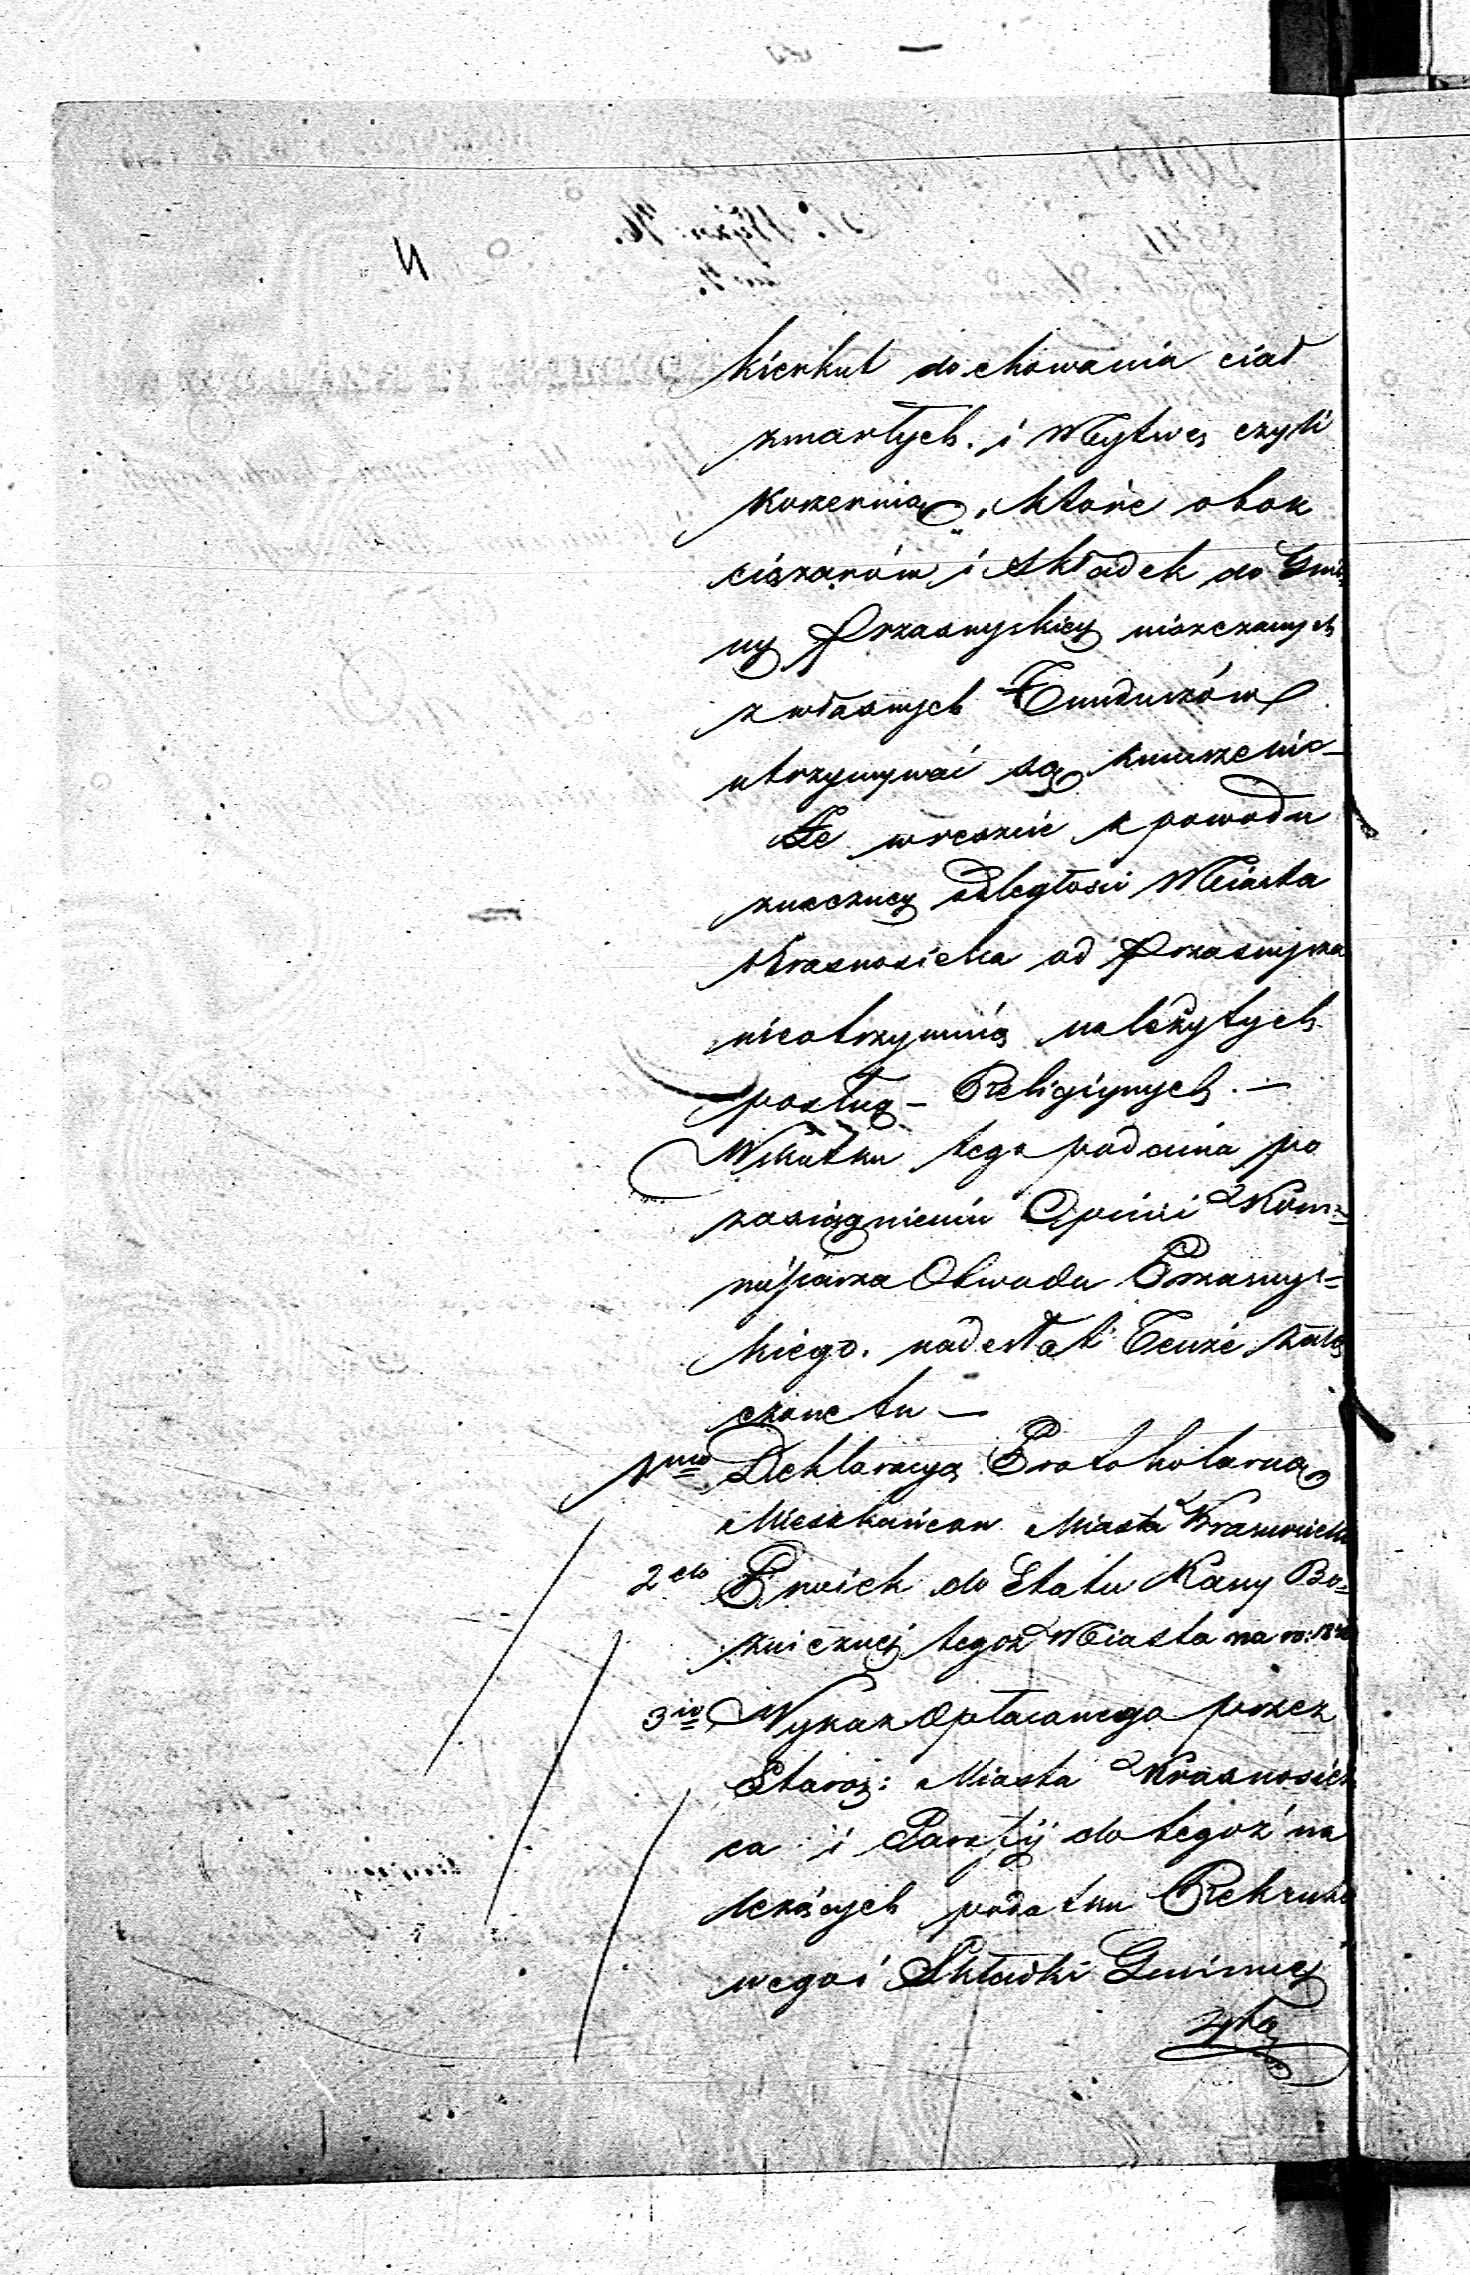 kierkut do chowania ciał
zmarłych. i Mytwę czyli
koszernią, które obok
ciężarów i składek do Gmi
ny Przasnyskiey uiszczanych
z własnych Funduszów
utrzymywać są zmuszeni –
Że wreszcie z powodu
znaczney odległości Miasta
Krasnosielca od Przasnysza
nieotrzymuią należytych
posług – Religiynych. –
Wskutku tego podania po
zasiągnieniu Opinii Kom=
missarza Obwodu Przasnys=
kiego. nadesłał Tenże załą
czone tu –
1mo Deklaracyą Protokolarną
Mieszkańcow Miasta Krasnosielca
2do Proiekt do Etatu Kassy Bo=
zniczney tegoż Miasta na ro:
3io Wykaz opłacanego przez
Staroz: Miasta Krasnosiel
ca i Parafij do tegoż na
leżących podatku Rekruto
wego i Składki Gminney
4to